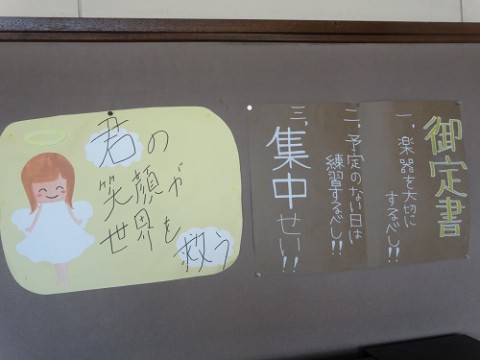 君の
笑顔が
世界を
救う
御定書
一、楽器を大切に
するべし!!
二、予定のない日は
練習するべし!!
三、
集中せい!!